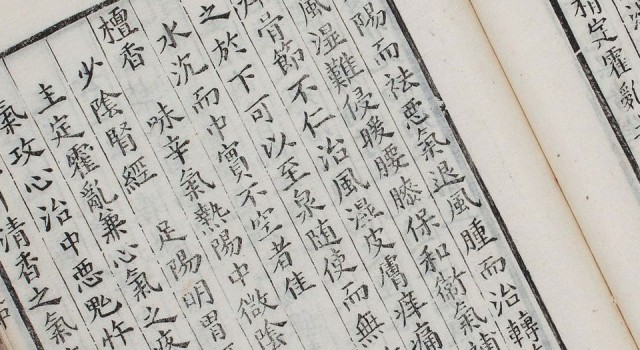 定霍亂
陽而祛惡氣退風腫而治轉
風濕難侵暖腰膝保和衛氣
骨節不仁治風濕皮膚痒痛
之於下可以至泉隨使而無
水沉而中實不空者佳
檀香 味辛氣熱陽中微陰
少陰腎經 足陽明胃
主定霍亂兼心氣之疼
氣攻心治中惡鬼忤
清香之氣